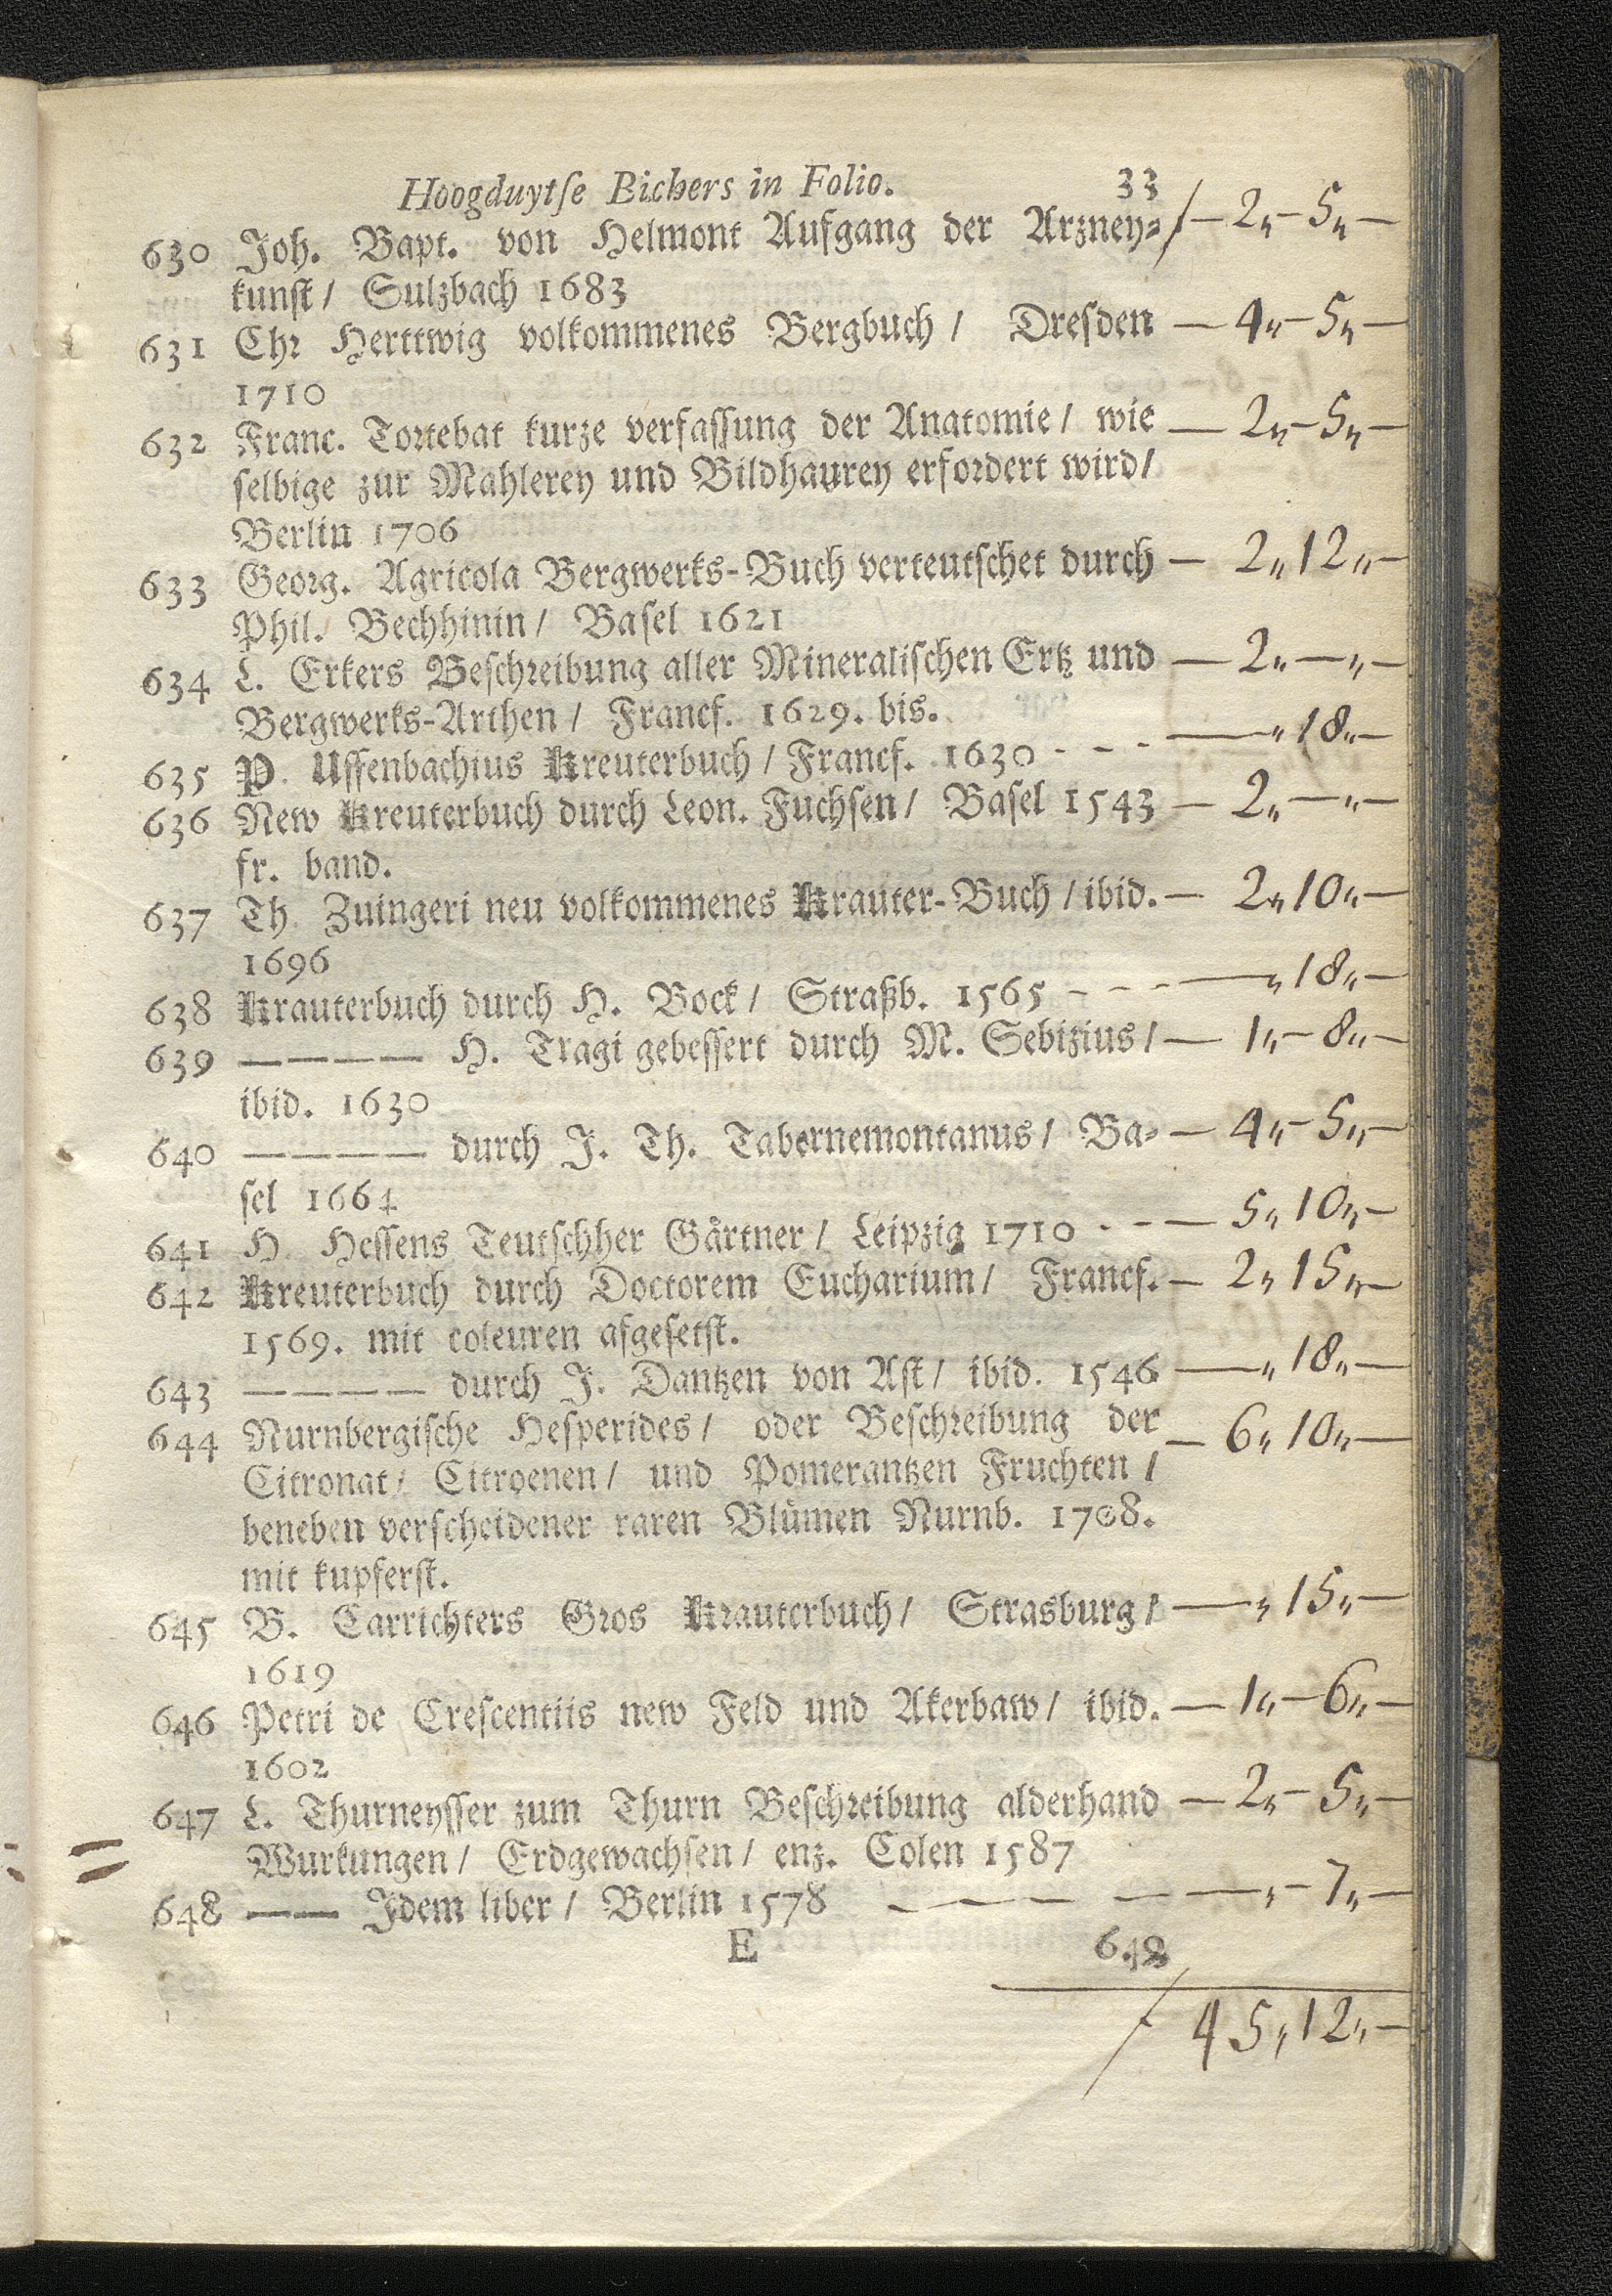 Hoogduytſe Bichers in Folio. 33
630 Joh. Bapt. von Helmont Aufgang der Arzney⸗ /—2„—5„—
kunst / Sulzbach 1683
631 Chr Herttwig volkommenes Bergbuch / Dresden —4„—5„—
1710
632 Franc. Tortebat kurze verfassung der Anatomie / wie —2„—5„—
selbige zur Mahlerey und Bildhaurey erfordert wird /
Berlin 1706
633 Georg. Agricola Bergwerks-Buch verteutschet durch —2„12„—
Phil. Bechhinin / Basel 1621
634 L. Erkers Beschreibung aller Mineralischen Ertz und —2„—„—
Bergwerks-Arthen / Francf. 1629. bis.
635 P. Uffenbachius Kreuterbuch / Francf. 1630 - - - —„18„—
636 New Kreuterbuch durch Leon. Fuchsen / Basel 1543 —2„—„—
fr. band.
637 Th. Zuingeri neu volkommenes Krauter-Buch / ibid. —2„10„—
1696
638 Krauterbuch durch H. Bock / Straßb. 1565 - - - —„18„—
639 ———— H. Tragi gebessert durch M. Sebizius / —1„—8„—
ibid. 1630
640 ———— durch J. Th. Tabernemontanus / Ba⸗ —4„—5„—
sel 1664
641 H. Hessens Teutschher Gårtner / Leipzig 1710 - - —5„10„—
642 Kreuterbuch durch Doctorem Eucharium / Francf. —2„15„—
1569. mit coleuren afgesetst.
643 ———— durch J. Dantzen von Ast / ibid. 1546 —„18„—
644 Nurnbergische Hesperides / oder Beschreibung der —6„10„—
Citronat / Citroenen / und Pomerantzen Fruchten /
beneben verscheidener raren Blůmen Nurnb. 1708.
mit kupferst.
645 B. Carrichters Gros Krauterbuch / Strasburg / —„15„—
1619
646 Petri de Crescentiis new Feld und Akerbaw / ibid. —1„—6„—
1602
647 L. Thurneysser zum Thurn Beschreibung alderhand —2„—5„—
Wurkungen / Erdgewachsen / enz. Colen 1587
648 —— Jdem liber / Berlin 1578 — — — — —„—7„—
E 648
/ 45„12„—